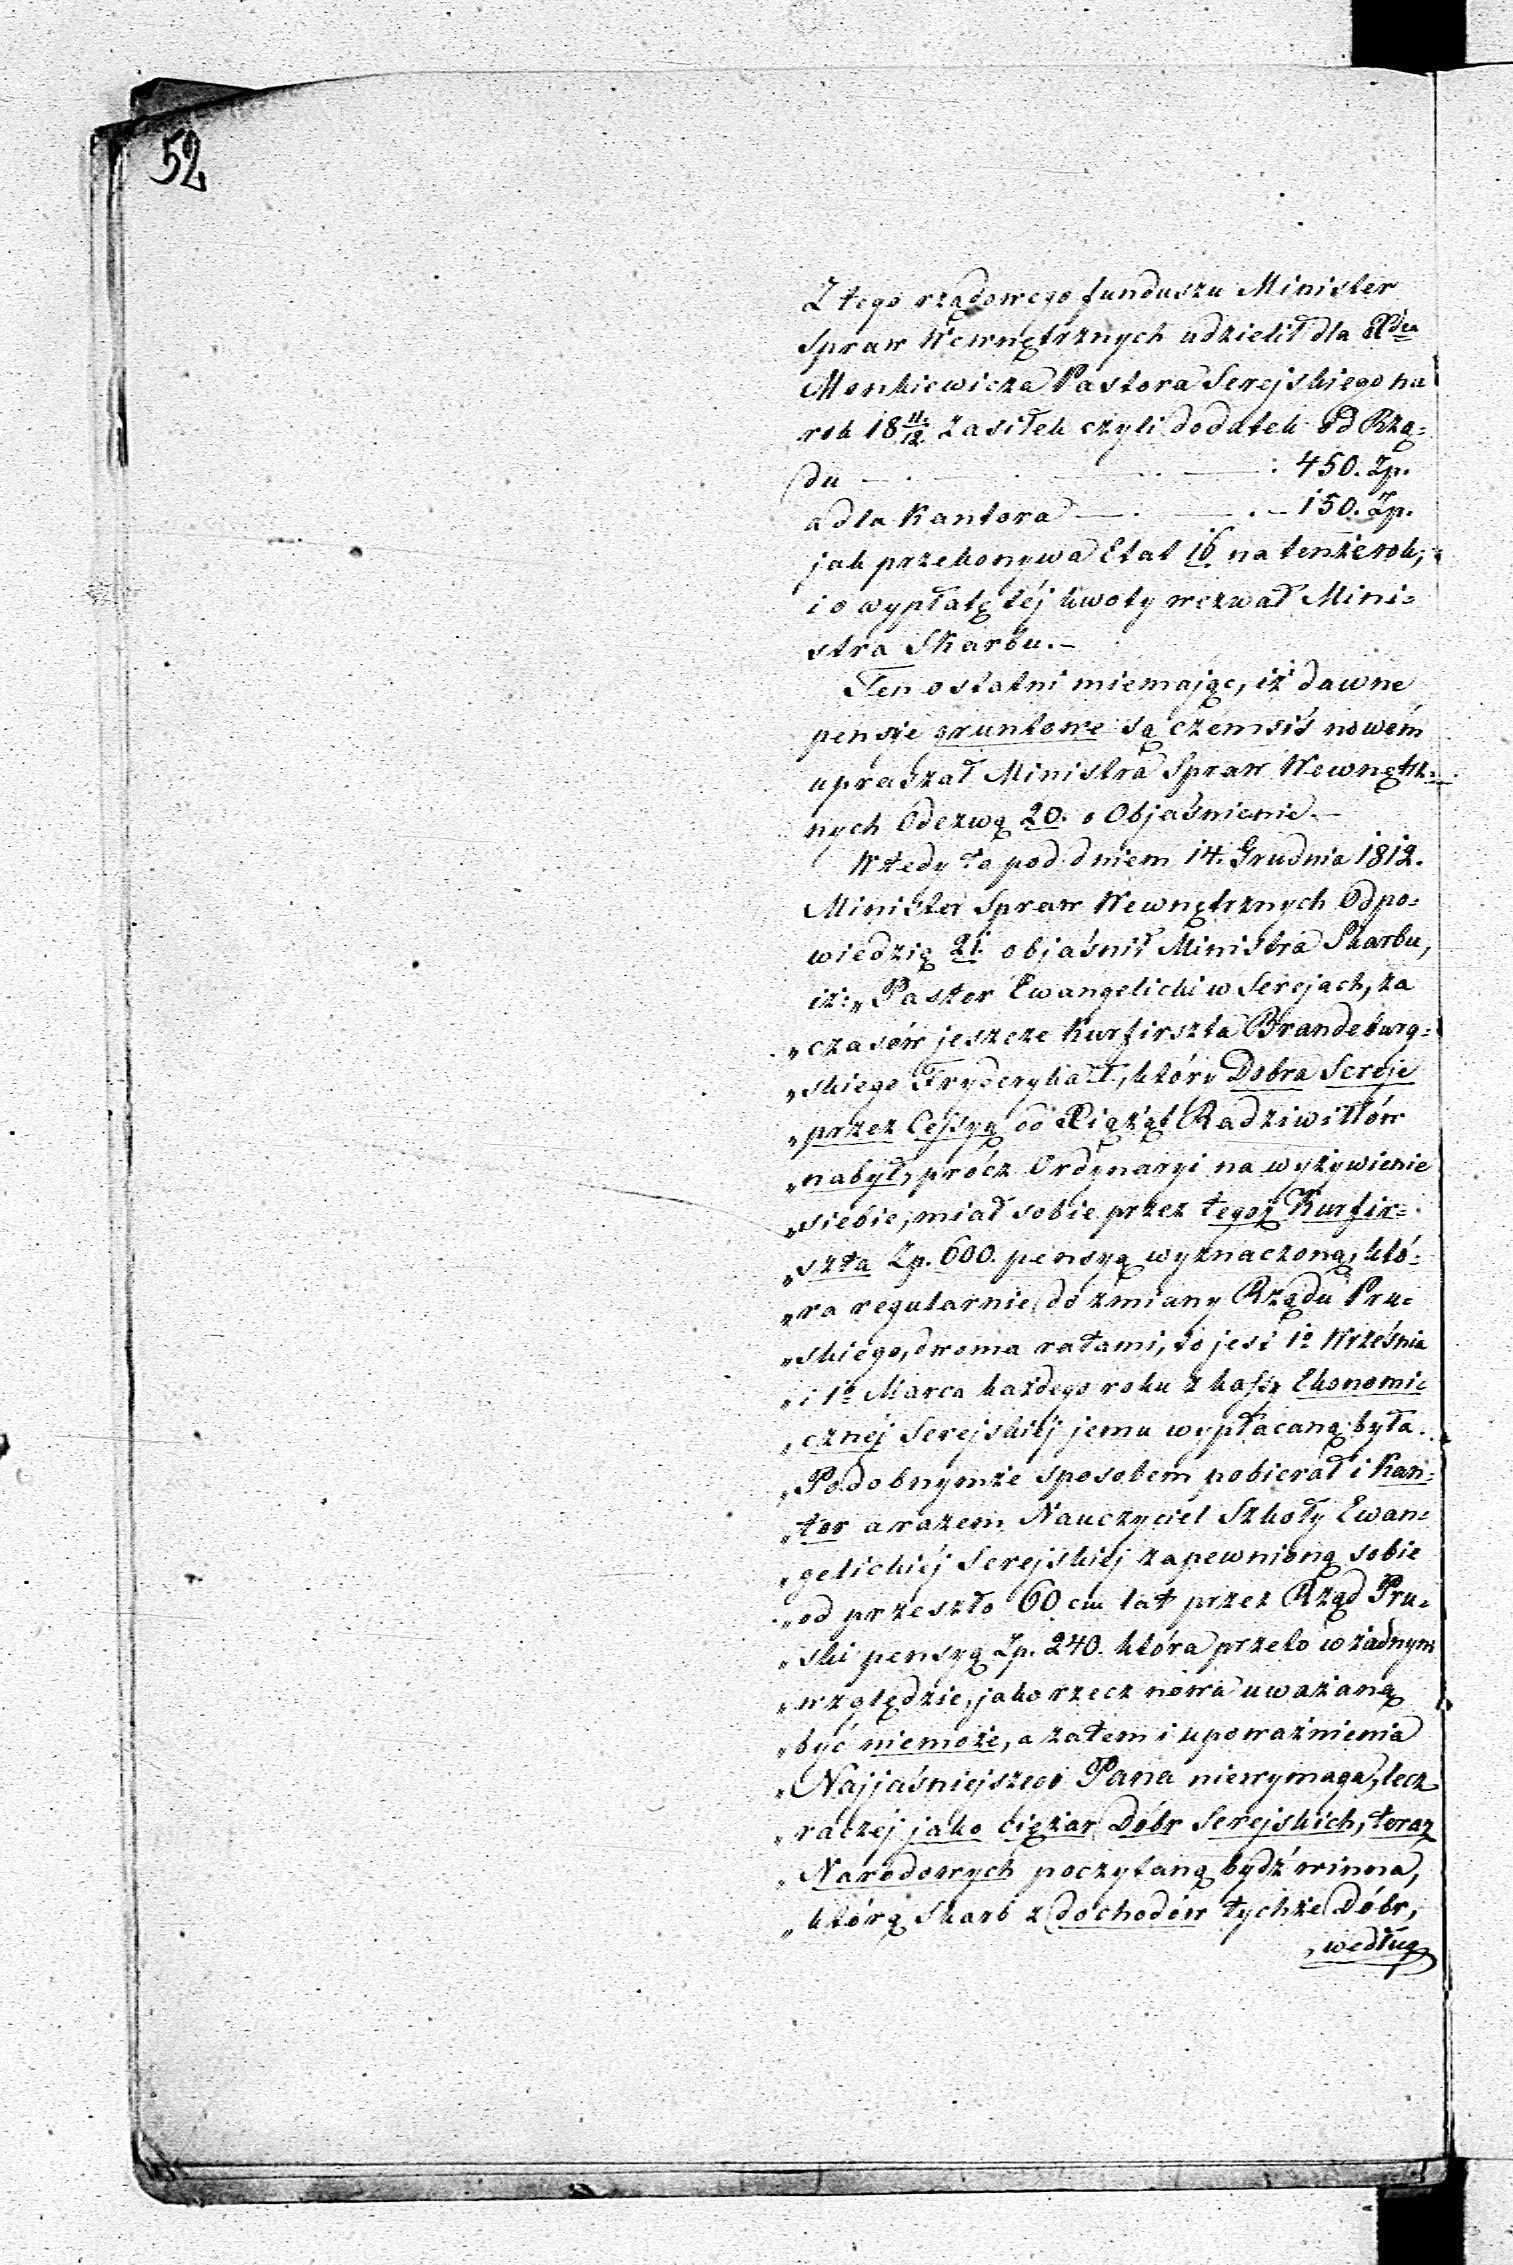 52
Z tego rządowego funduszu Minister
Spraw Wewnętrznych udzielił dla Xdza
Monkiewicza Pastora Serejskiego na
rok 18 11/12. zasiłek czyli dodatek od Rzą=
du — . — . . — : 450. Zp.
a dla Kantora — . — . — 150. Zp.
jak przekonywa Etat na tenże rok,
i o wypłatę téj kwoty wezwał Mini=
stra Skarbu.—
Ten ostatni mniemając, iż dawne
pensje gruntowe są czemsiś nowém
upraszał Ministra Spraw Wewnętrz=
nych Odezwą 20. o Objaśnienie.—
Wtedy to pod dniem 14. Grudnia 1812.
Minister Spraw Wewnętrznych Odpo=
wiedzią 21. objaśnił Ministra Skarbu,
iż: „Pastor Ewangelicki w Serejach, za
„czasów jeszcze Kurfirszta Brandeburg=
„skiego Fryderyka I, który Dobra Sereje
„przez Cessyą od Xiążąt Radziwiłłów
„nabył, prócz Ordynaryi na wyżywienie
„siebie, miał sobie przez tegoż Kurfir=
„szta Zp. 600. pensyą wyznaczoną, któ=
„ra regularnie do zmiany Rządu Pru=
„skiego, dwoma ratami, to jest 1º Września
„i 1º Marca każdego roku z kassy Ekonomi=
„cznéj Serejskiéj jemu wypłacaną była.
„Podobnymże sposobem pobierał i Kan=
„tor a razem Nauczyciel Szkoły Ewan=
„gelickiéj Serejskiéj zapewnioną sobie
„od przeszło 60 ciu lat przez Rząd Pru=
„ski pensyą Zp. 240. która przeto w żadnym
„względzie, jako rzecz nowa uważaną
„być niemoże, a zatem i upoważnienia
„Najjaśniejszego Pana niewymaga, lecz
„raczéj jako ciężar Dóbr Serejskich, teraz
„Narodowych poczytaną bydź winna,
„którą Skarb z dochodów tychże Dóbr,
„według